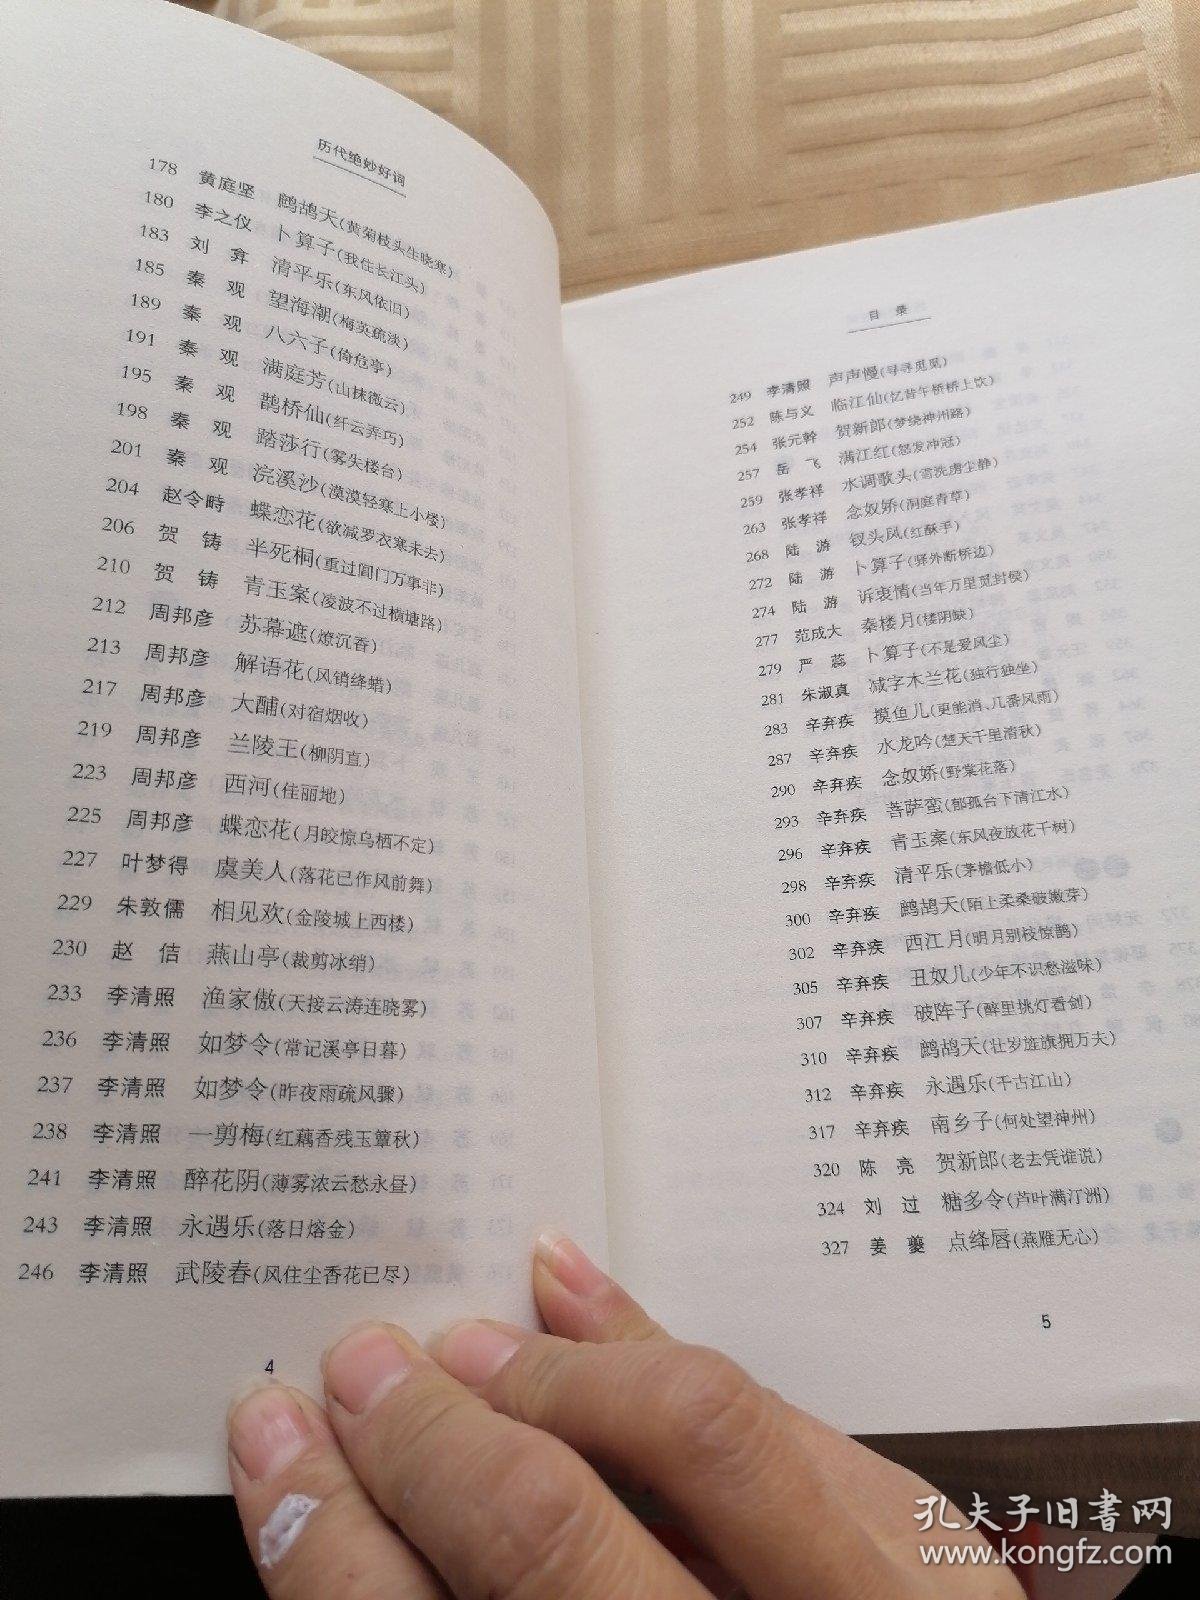 历代绝妙好词
178 黄庭坚 鹧鸪天(黄菊枝头生晓寒)
180 李之仪 卜算子(我住长江头)
183 刘弇 清平乐(东风依旧)
185 秦观 望海潮(梅英疏淡)
189 秦观 八六子(倚危亭)
191 秦观 满庭芳(山抹微云)
195 秦观 鹊桥仙(纤云弄巧)
198 秦观 踏莎行(雾失楼台)
201 秦观 浣溪沙(漠漠轻寒上小楼)
204 赵令畤 蝶恋花(欲减罗衣寒未去)
206 贺铸 半死桐(重过阊门万事非)
210 贺铸 青玉案(凌波不过横塘路)
212 周邦彦 苏幕遮(燎沉香)
213 周邦彦 解语花(风销绛蜡)
217 周邦彦 大酺(对宿烟收)
219 周邦彦 兰陵王(柳阴直)
223 周邦彦 西河(佳丽地)
225 周邦彦 蝶恋花(月皎惊乌栖不定)
227 叶梦得 虞美人(落花已作风前舞)
229 朱敦儒 相见欢(金陵城上西楼)
230 赵佶 燕山亭(裁剪冰绡)
233 李清照 渔家傲(天接云涛连晓雾)
236 李清照 如梦令(常记溪亭日暮)
237 李清照 如梦令(昨夜雨疏风骤)
238 李清照 一剪梅(红藕香残玉簟秋)
241 李清照 醉花阴(薄雾浓云愁永昼)
243 李清照 永遇乐(落日熔金)
246 李清照 武陵春(风住尘香花已尽)
4
目录
249 李清照 声声慢(寻寻觅觅)
252 陈与义 临江仙(忆昔午桥桥上饮)
254 张元幹 贺新郎(梦绕神州路)
257 岳飞 满江红(怒发冲冠)
259 张孝祥 水调歌头(雪洗虏尘静)
263 张孝祥 念奴娇(洞庭青草)
268 陆游 钗头凤(红酥手)
272 陆游 卜算子(驿外断桥边)
274 陆游 诉衷情(当年万里觅封侯)
277 范成大 秦楼月(楼阴缺)
279 严蕊 卜算子(不是爱风尘)
281 朱淑真 减字木兰花(独行独坐)
283 辛弃疾 摸鱼儿(更能消、几番风雨)
287 辛弃疾 水龙吟(楚天千里清秋)
290 辛弃疾 念奴娇(野棠花落)
293 辛弃疾 菩萨蛮(郁孤台下清江水)
296 辛弃疾 青玉案(东风夜放花千树)
298 辛弃疾 清平乐(茅檐低小)
300 辛弃疾 鹧鸪天(陌上柔桑破嫩芽)
302 辛弃疾 西江月(明月别枝惊鹊)
305 辛弃疾 丑奴儿(少年不识愁滋味)
307 辛弃疾 破阵子(醉里挑灯看剑)
310 辛弃疾 鹧鸪天(壮岁旌旗拥万夫)
312 辛弃疾 永遇乐(千古江山)
317 辛弃疾 南乡子(何处望神州)
320 陈亮 贺新郎(老去凭谁说)
324 刘过 糖多令(芦叶满汀洲)
327 姜夔 点绛唇(燕雁无心)
5
孔夫子旧書网
www.kongfz.com